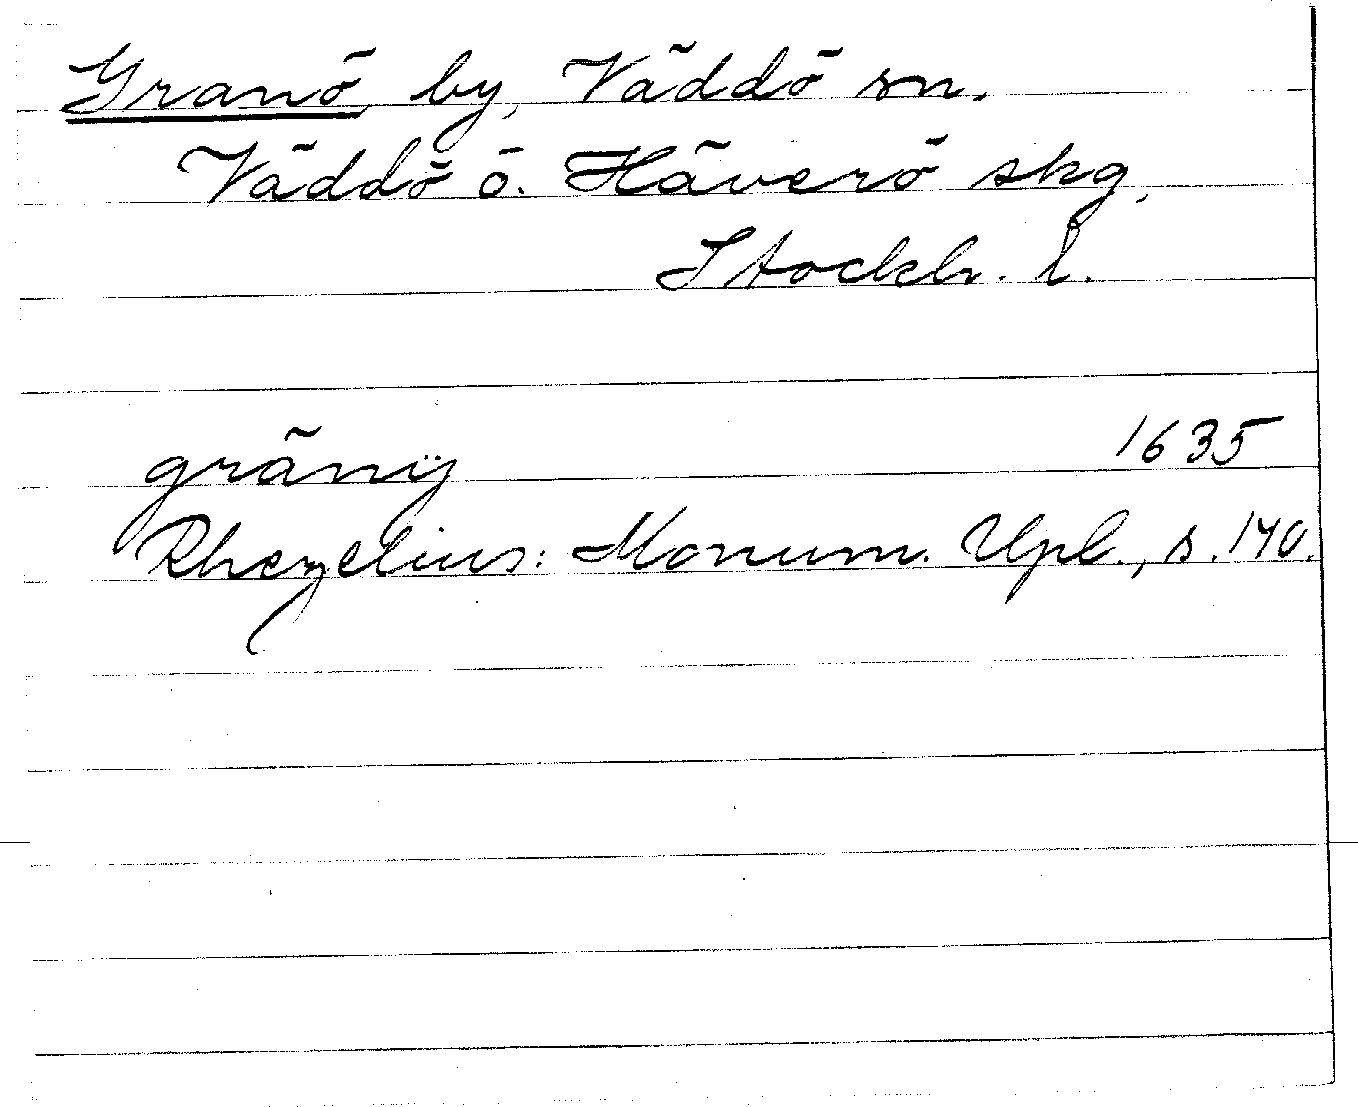 Granö, by, Väddö sn.
Väddö o. Häverö skg,
Stockh. l.
gränÿ 1635
Rhezelius: Monum. Upl., s. 140.